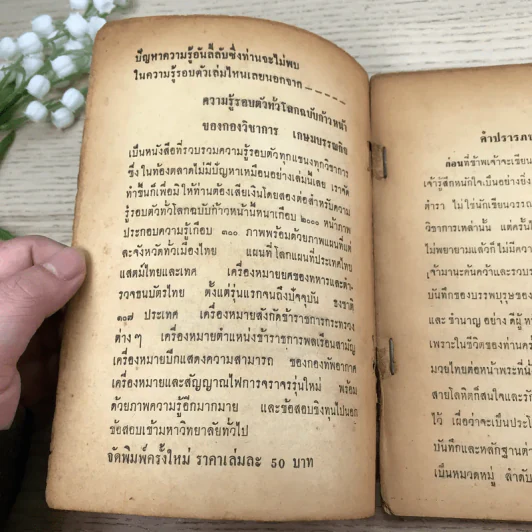 ปัญหาความรู้อันลี้ลับซึ่งท่านจะไม่พบ
ในความรู้รอบตัวเล่มไหนเลยนอกจาก ------
ความรู้รอบตัวทั่วโลกฉบับก้าวหน้า
ของกองวิชาการ เกษมบรรณกิจ
เป็นหนังสือที่รวบรวมความรู้รอบตัวทุกแขนงทุกวิชาการ
ซึ่งในท้องตลาดไม่มีปัญหาเหมือนอย่างเล่มนี้เลย เราคัด
ทำขึ้นก็เพื่อมิให้ท่านต้องเสียเงินโดยสองต่อสำหรับความ
รู้รอบตัวทั่วโลกฉบับก้าวหน้านี้หนาเกือบ ๒๐๐๐ หน้าภาพ
ประกอบความรู้เกือบ ๓๐๐ ภาพพร้อมด้วยภาพแผนที่แต่
ละจังหวัดทั่วเมืองไทย แผนที่โลกแผนที่ประเทศไทย
แสตมป์ไทยและเทศ เครื่องหมายยศของทหารและตำ-
รวจธนบัตรไทย ตั้งแต่รุ่นแรกจนถึงปัจจุบัน ธงชาติ
๑๐๗ ประเทศ เครื่องหมายสังกัดข้าราชการกระทรวง
ต่างๆ เครื่องหมายตำแหน่งข้าราชการพลเรือนสามัญ
เครื่องหมายปีกแสดงความสามารถ ของกองทัพอากาศ
เครื่องหมายและสัญญาณไฟการจราจรรุ่นใหม่ พร้อม
ด้วยภาพความรู้อีกมากมาย และข้อสอบชิงทุนไปนอก
ข้อสอบเข้ามหาวิทยาลัยทั่วไป
จัดพิมพ์ครั้งใหม่ ราคาเล่มละ 50 บาท
คำปรารภ
ก่อนที่ข้าพเจ้าจะเขียน
เจ้ารู้สึกหนักใจเป็นอย่างยิ่ง
ตำรา ไม่ใช่นักเขียนวรรณ
วิชาการเหล่านั้น แต่ครั้น
ไม่พยายามแล้วก็ไม่มีความ
เจ้ามานะค้นคว้าและรวบร
บันทึกของบรรพบุรุษของ
และ ชำนาญ อย่าง ดีผู้ ห
เพราะในชีวิตของท่านคร
มวยไทยต่อหน้าพระที่นั่
สายโลหิตก็สนใจและรัก
ไว้ เผื่อว่าจะเป็นประโ
บันทึกและหลักฐานต่า
เป็นหมวดหมู่ ลำดับ